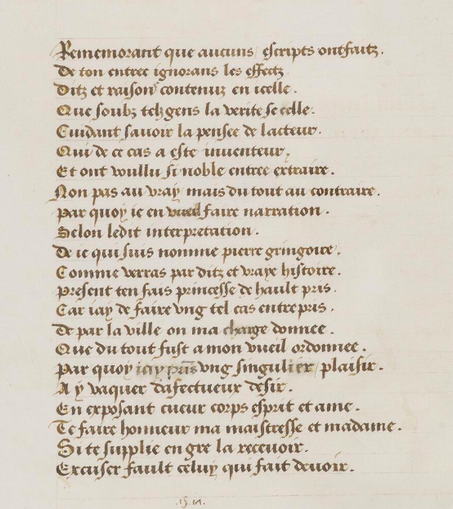 Rememorant que aucuns escripts ont faitz.
De ton entree ignorans les effectz
Ditz et raison contenuz en icelle.
Que soubz telz gens la verite se celle.
Cuidant sauoir la pensee de lacteur.
Qui de ce cas a este inuenteur.
Et ont voullu si noble entree extraire.
Non pas au vray mais du tout au contraire.
Par quoy ie en vueil faire narration.
Selon ledit interpretation.
De ie qui suis nomme pierre gringoire.
Comme verras par ditz et vraye histoire.
Present ten fais princesse de hault pris.
Car iay de faire vng tel cas entrepris.
De par la ville on ma charge donnee.
Que du tout fust a mon vueil ordonnee.
Par quoy iay pris vng singulier plaisir.
A y vaquer dafectueux desir.
En exposant cueur corps esprit et ame.
Te faire honneur ma maistresse et madame.
Si te supplie en gre la receuoir.
Excuser fault celuy qui fait deuoir.